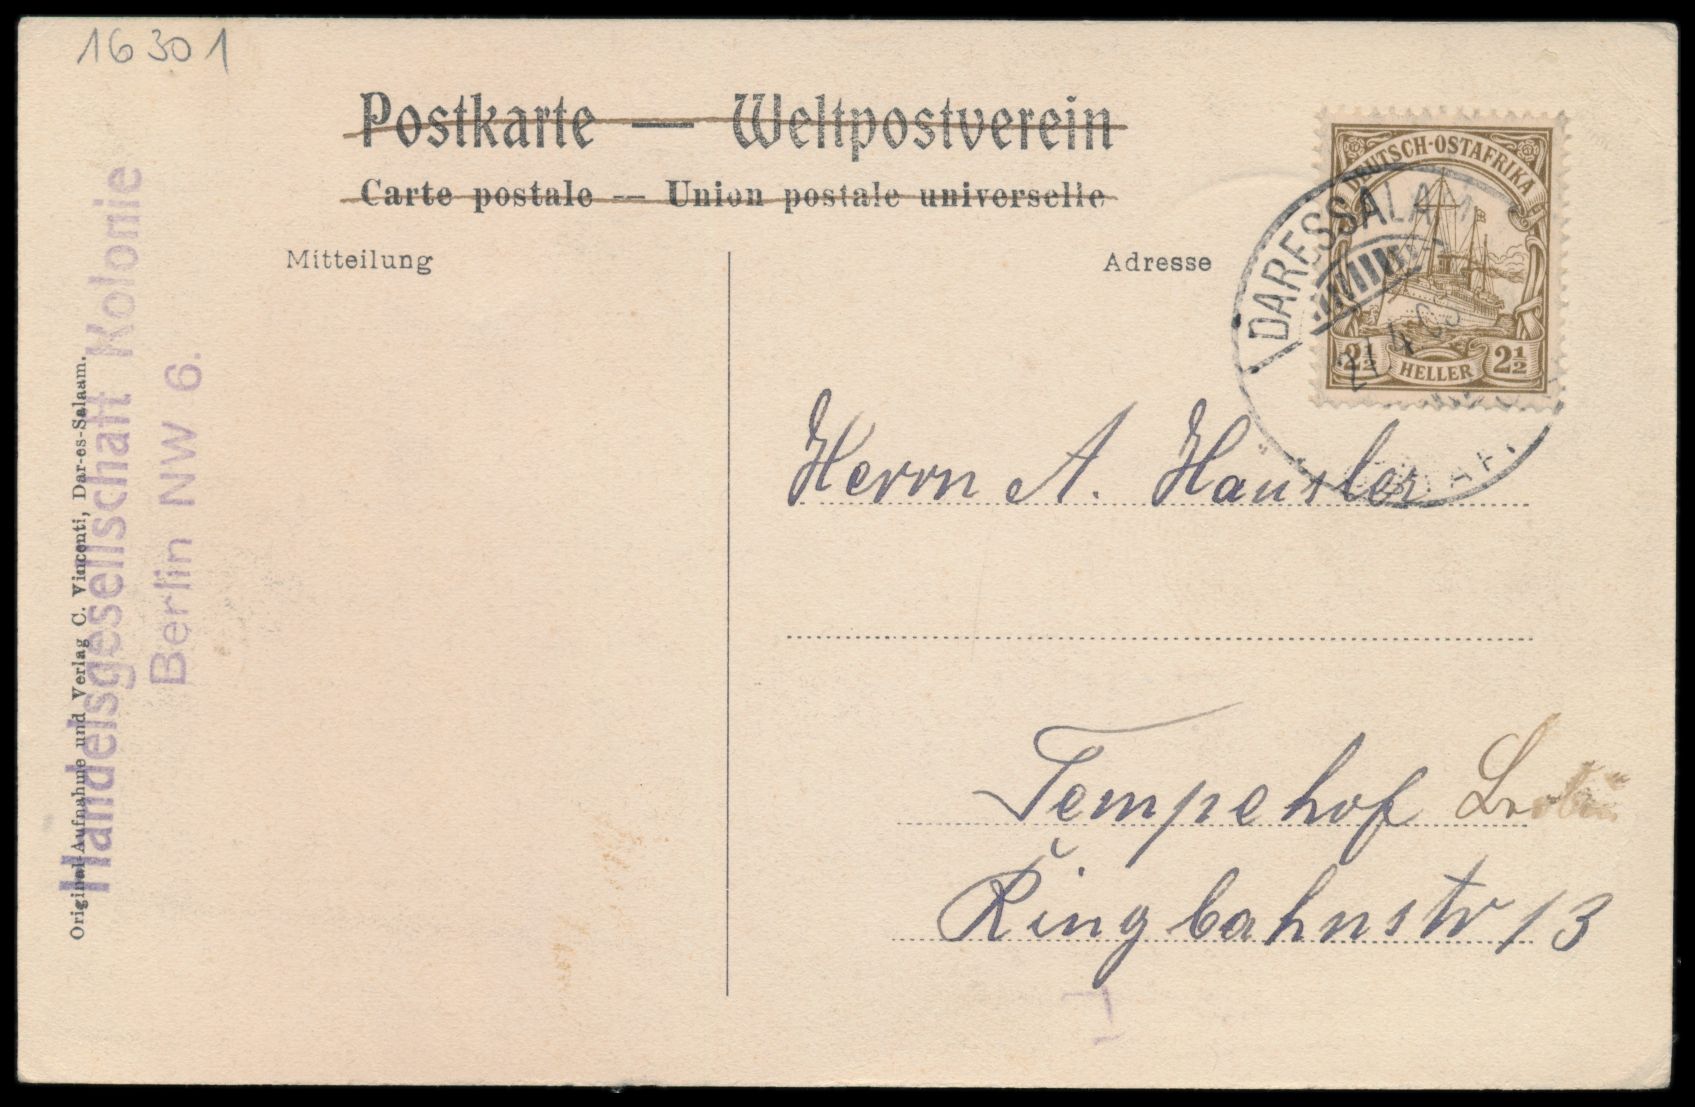 16301
Postkarte — Weltpostverein
Carte postale — Union postale universelle
Mitteilung
Adresse
DEUTSCH-OSTAFRIKA
2½ HELLER 2½
DARESSALAM
Herrn A. Häusler
Tempelhof
Ringbahnstr 13
Handelsgesellschaft Kolonie
Berlin NW 6.
Original-Aufnahme und Verlag C. Vincenti, Dar-es-Salaam.